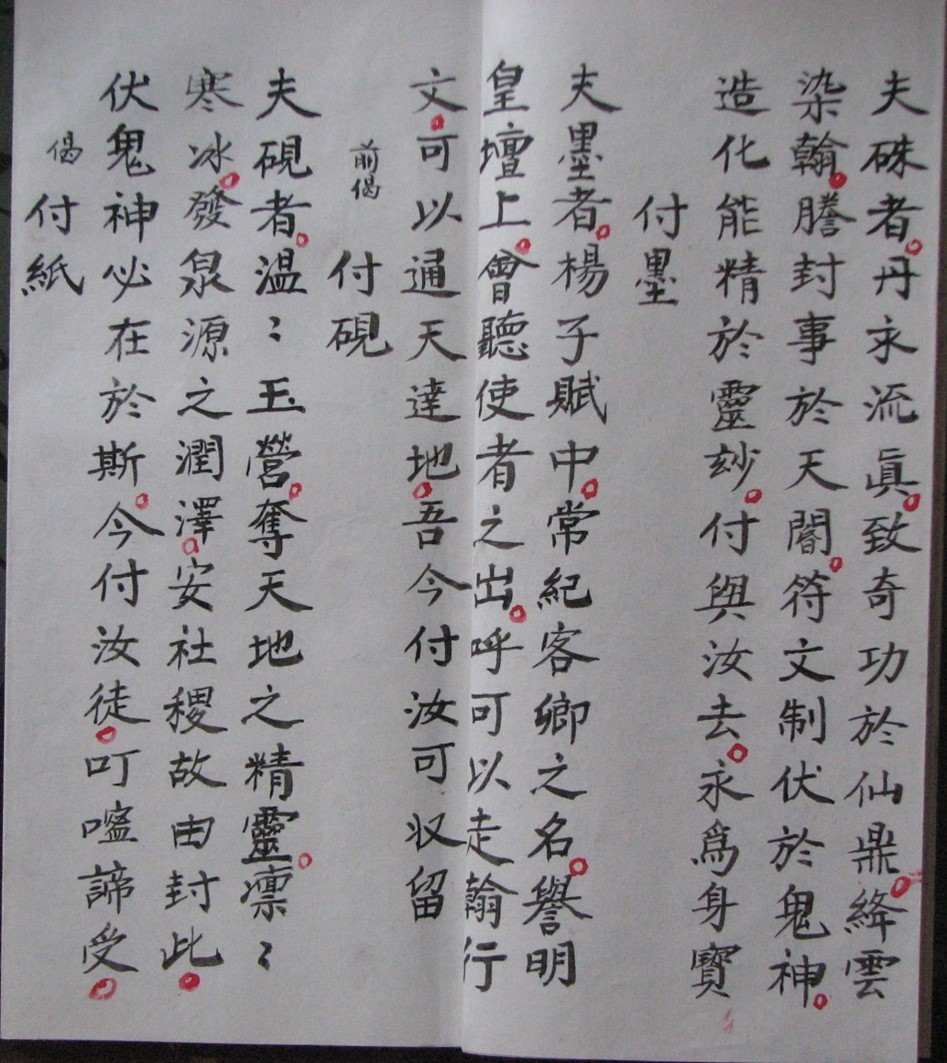 夫硃者丹永流眞致奇功於仙鼎絳雲
染翰謄封事於天閽符文制伏於鬼神
造化能精於靈玅付與汝去永爲身寶
付墨
夫墨者楊子賦中常紀客卿之名譽明
皇壇上會聽使者之出呼可以走翰行
文可以通天達地吾今付汝可收留
前偈 付硯
夫硯者溫〻玉營奪天地之精靈凛〻
寒冰發泉源之潤澤安社稷故由封此
伏鬼神必在於斯今付汝徒叮嚀諦受
偈 付紙